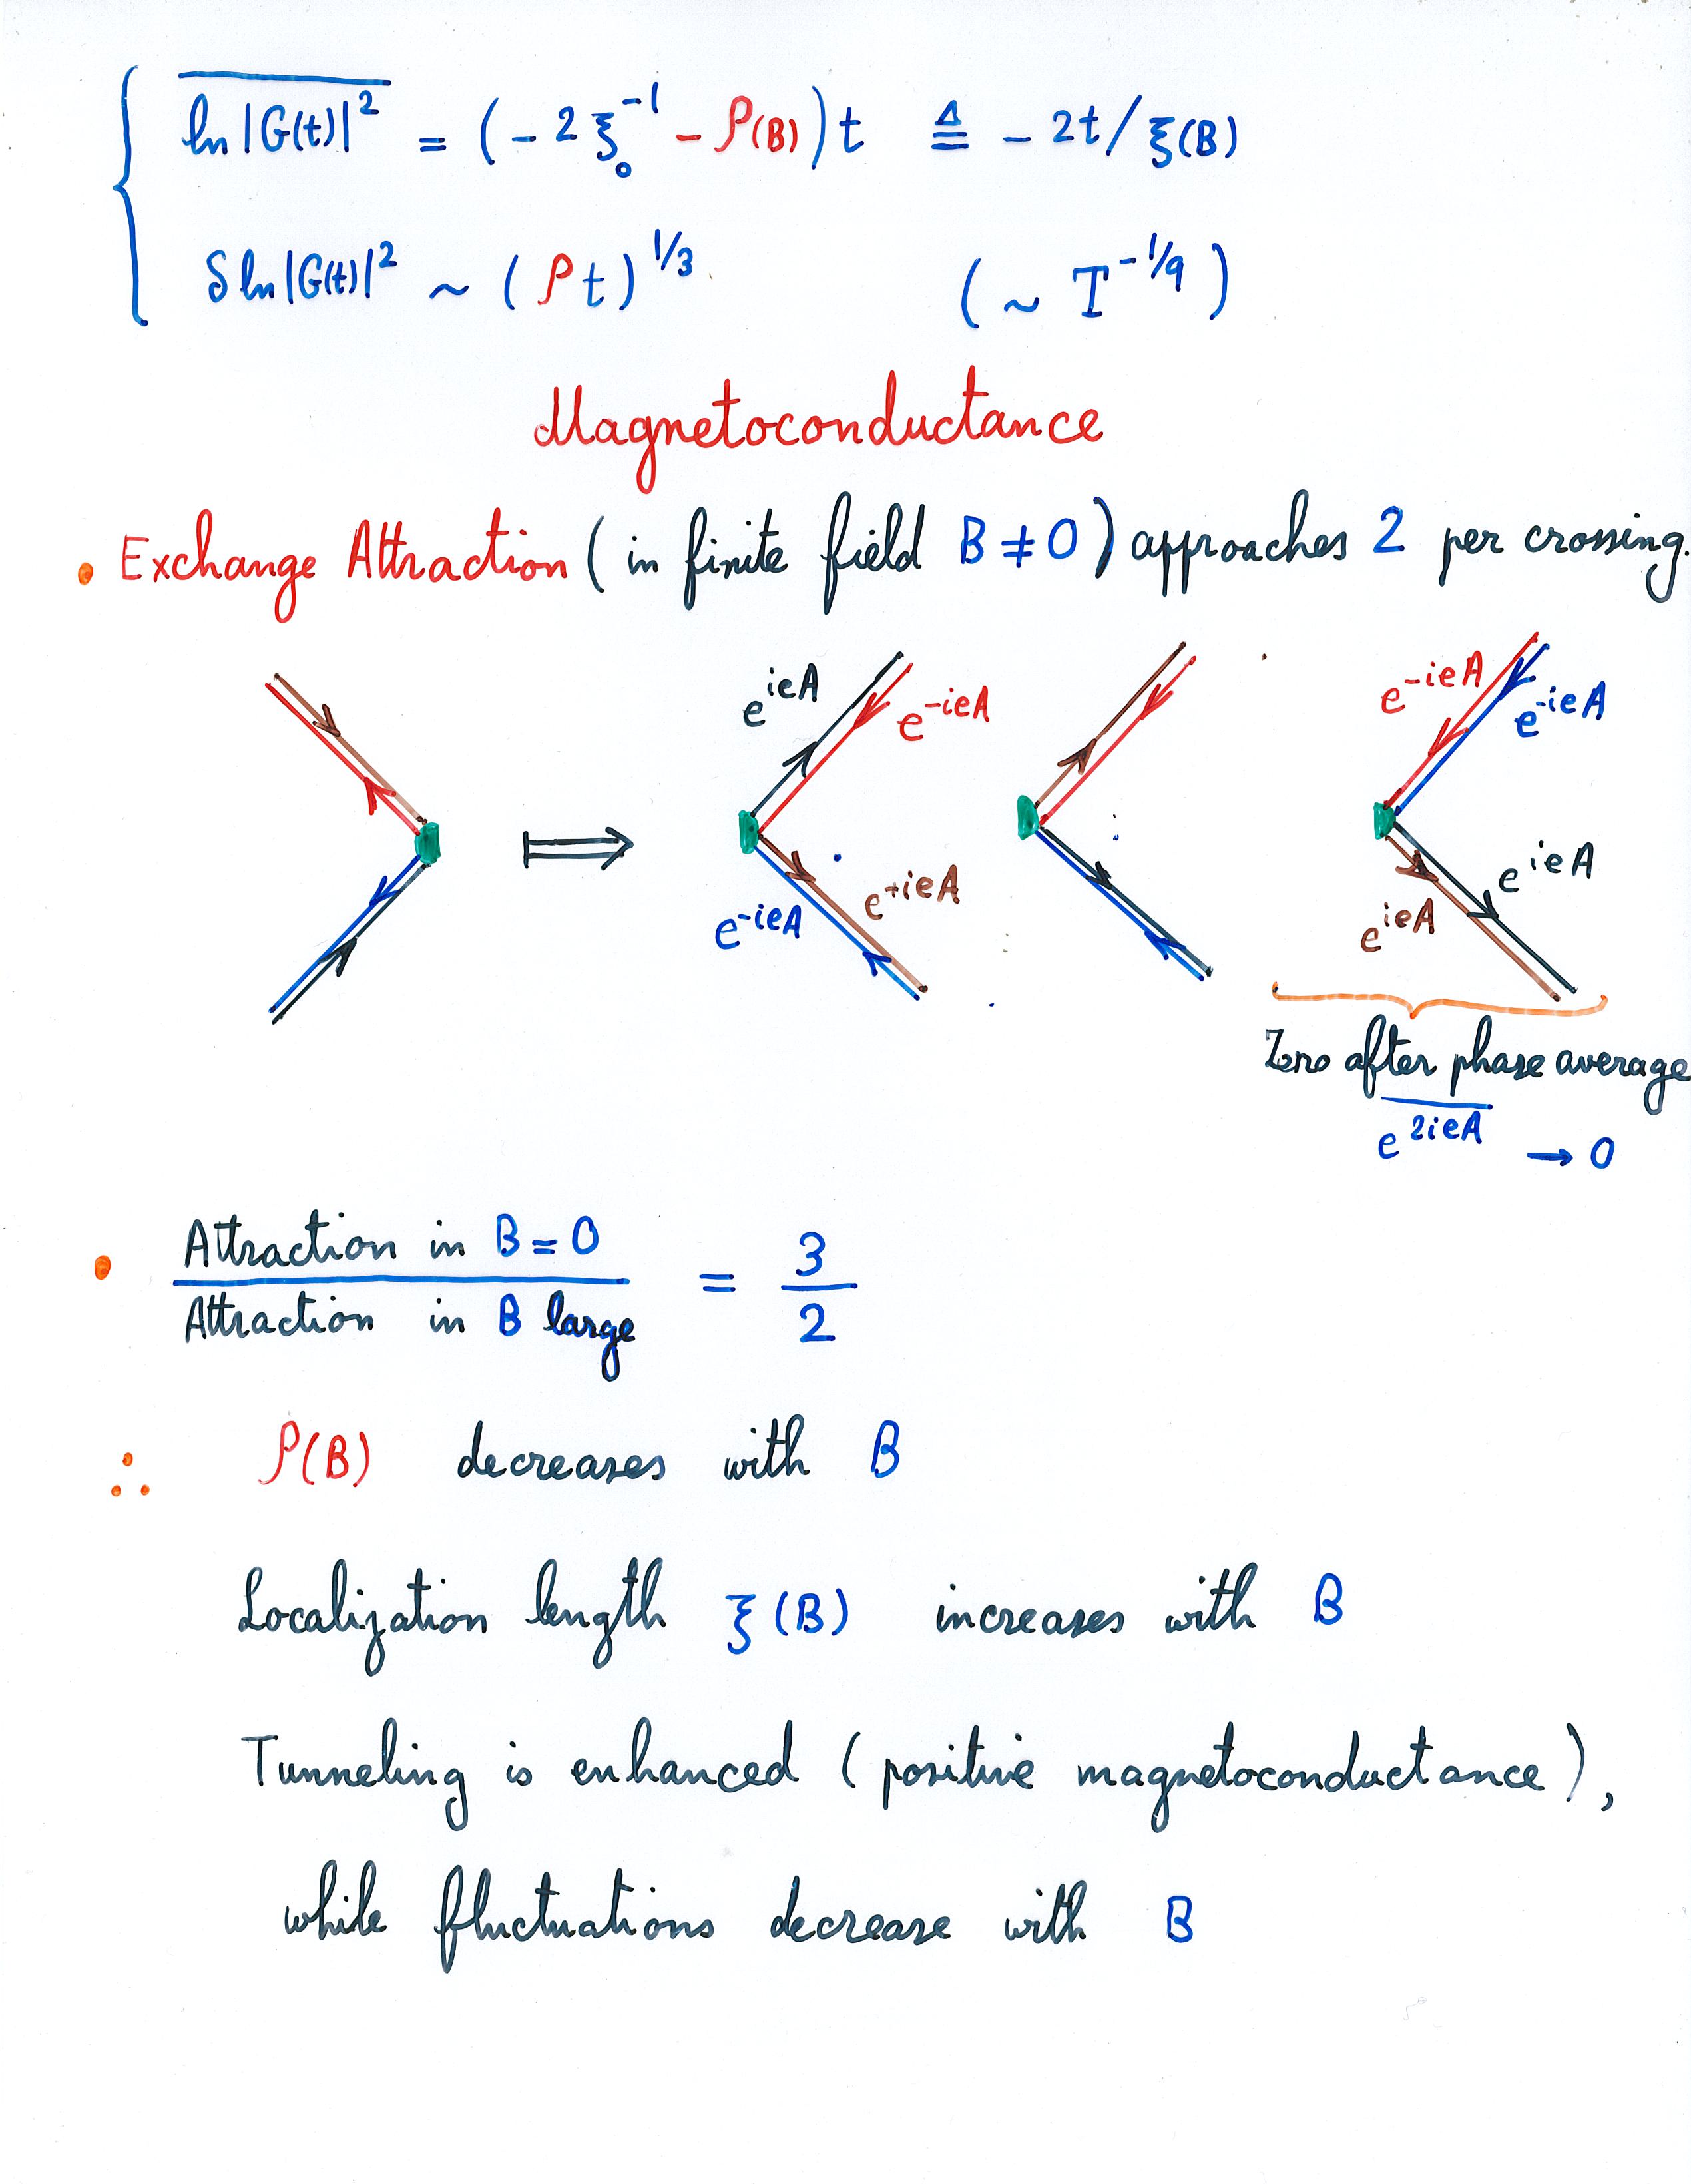 ln |G(t)|² = (- 2 ξ₀⁻¹ - ρ(B)) t ≜ - 2t/ξ(B)
δ ln |G(t)|² ~ (ρt)^1/3 (~ T^-1/9)
Magnetoconductance
• Exchange Attraction (in finite field B ≠ 0) approaches 2 per crossing.
e^ieA e^-ieA e^-ieA e^-ieA
e^-ieA e^+ieA e^ieA e^ieA
Zero after phase average
e^2ieA → 0
• Attraction in B = 0 / Attraction in B large = 3/2
∴ ρ(B) decreases with B
Localization length ξ(B) increases with B
Tunneling is enhanced (positive magnetoconductance),
while fluctuations decrease with B